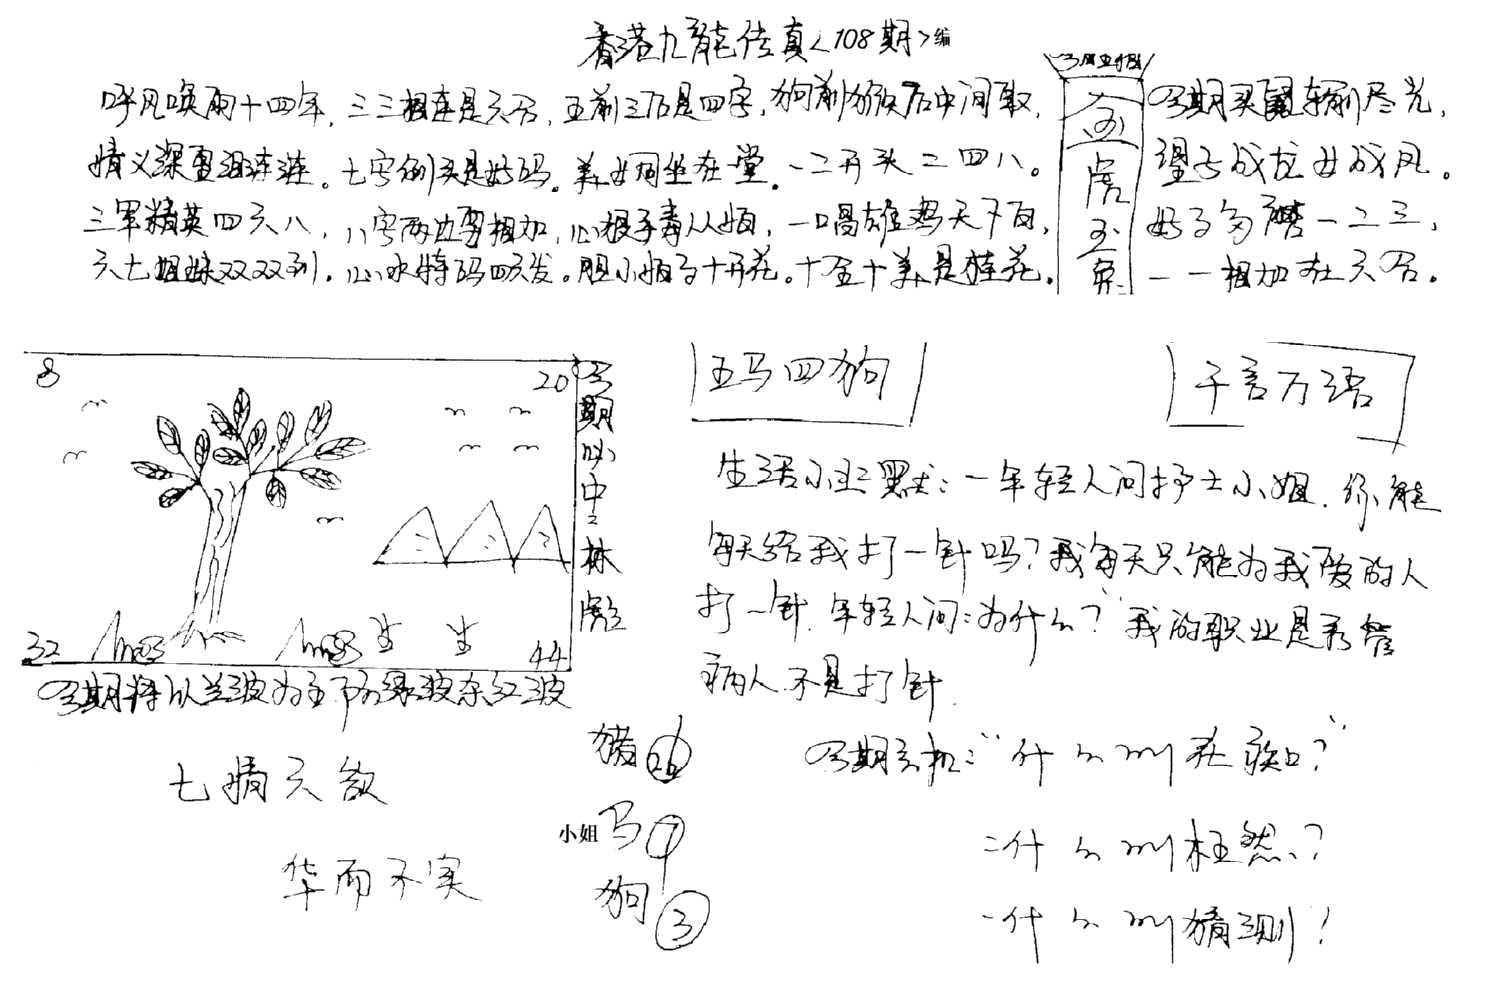 香港九龍传真<108期>编
呼风唤雨十四年，三三相连是六合，五前三后是四字，狗前猴后中间取，
情义深重泪涟涟。七字倒头是好码。美女同坐在堂。一二开头二四八。
三军精英四六八，八字两边再相加，心狠手毒从烦，一唱雄鸡天下白，
六七姐妹双双到，心水特码四六发。胆小怕了十开花。十全十美是桂花。
今期买鼠转刷尽光，
望子成龙女成凤。
好了多磨一二三，
一一相加在六合。
8
20
32
44
今期必中林彪
今期将以兰波为主下为绿波杂红波
七情六欲
华而不实
五马四狗
千言万语
生活小幽默：一年轻人问护士小姐．你能
每天给我打一针吗？我每天只能为我爱的人
打一针．年轻人问：为什么？我的职业是看管
病人．不是打针．
猪
小姐
马⑦
狗③
今期玄机：“什么叫在家？”
二什么叫枉然？
一什么叫猜测？